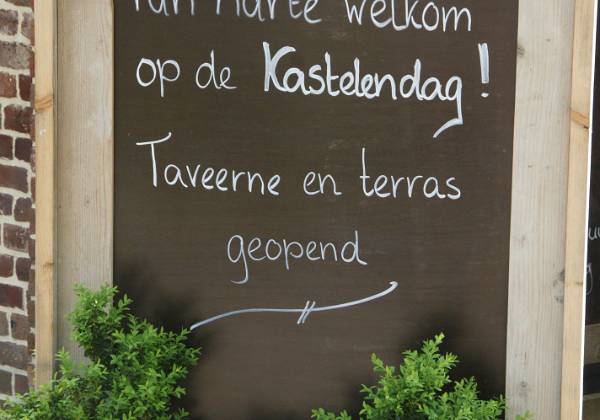 van harte welkom
op de Kastelendag!
Taveerne en terras
geopend